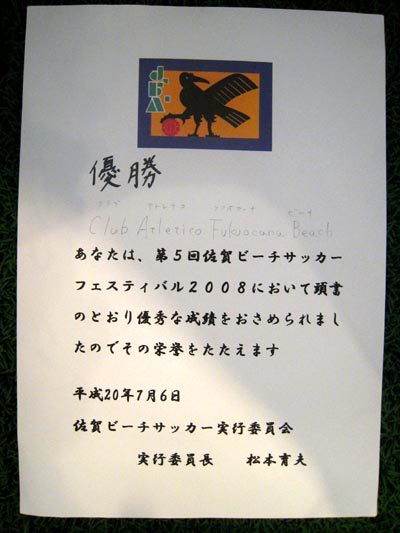 優勝
クラブ アトレチコ フクオカーナ ビーチ
Club Atletico Fukuocana Beach
あなたは、第5回佐賀ビーチサッカー
フェスティバル2008において頭書
のとおり優秀な成績をおさめられまし
たのでその栄誉をたたえます
平成20年7月6日
佐賀ビーチサッカー実行委員会
実行委員長 松本育夫